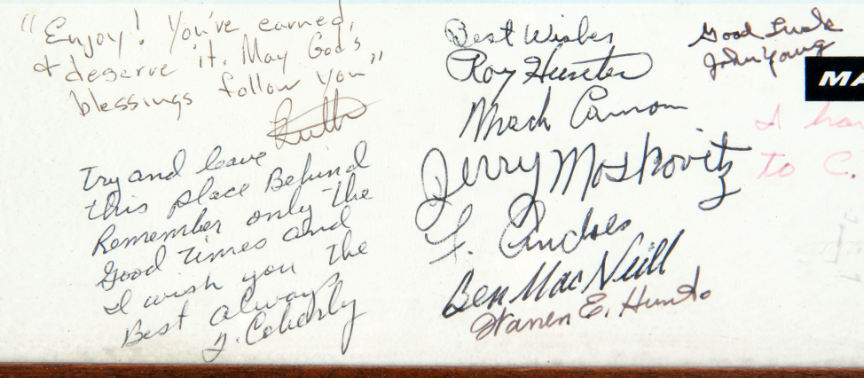 "Enjoy! You've earned,
& deserve it. May God's
blessings follow you"
Ruth
Try and leave
this place Behind
Remember only the
Good Times and
I wish you the
Best always
Best Wishes
Roy Hunter
Mack Cannon
Jerry Moskovitz
Ben MacNeill
Warren E.
Good Luck
John Young
MA
I ha
to C.